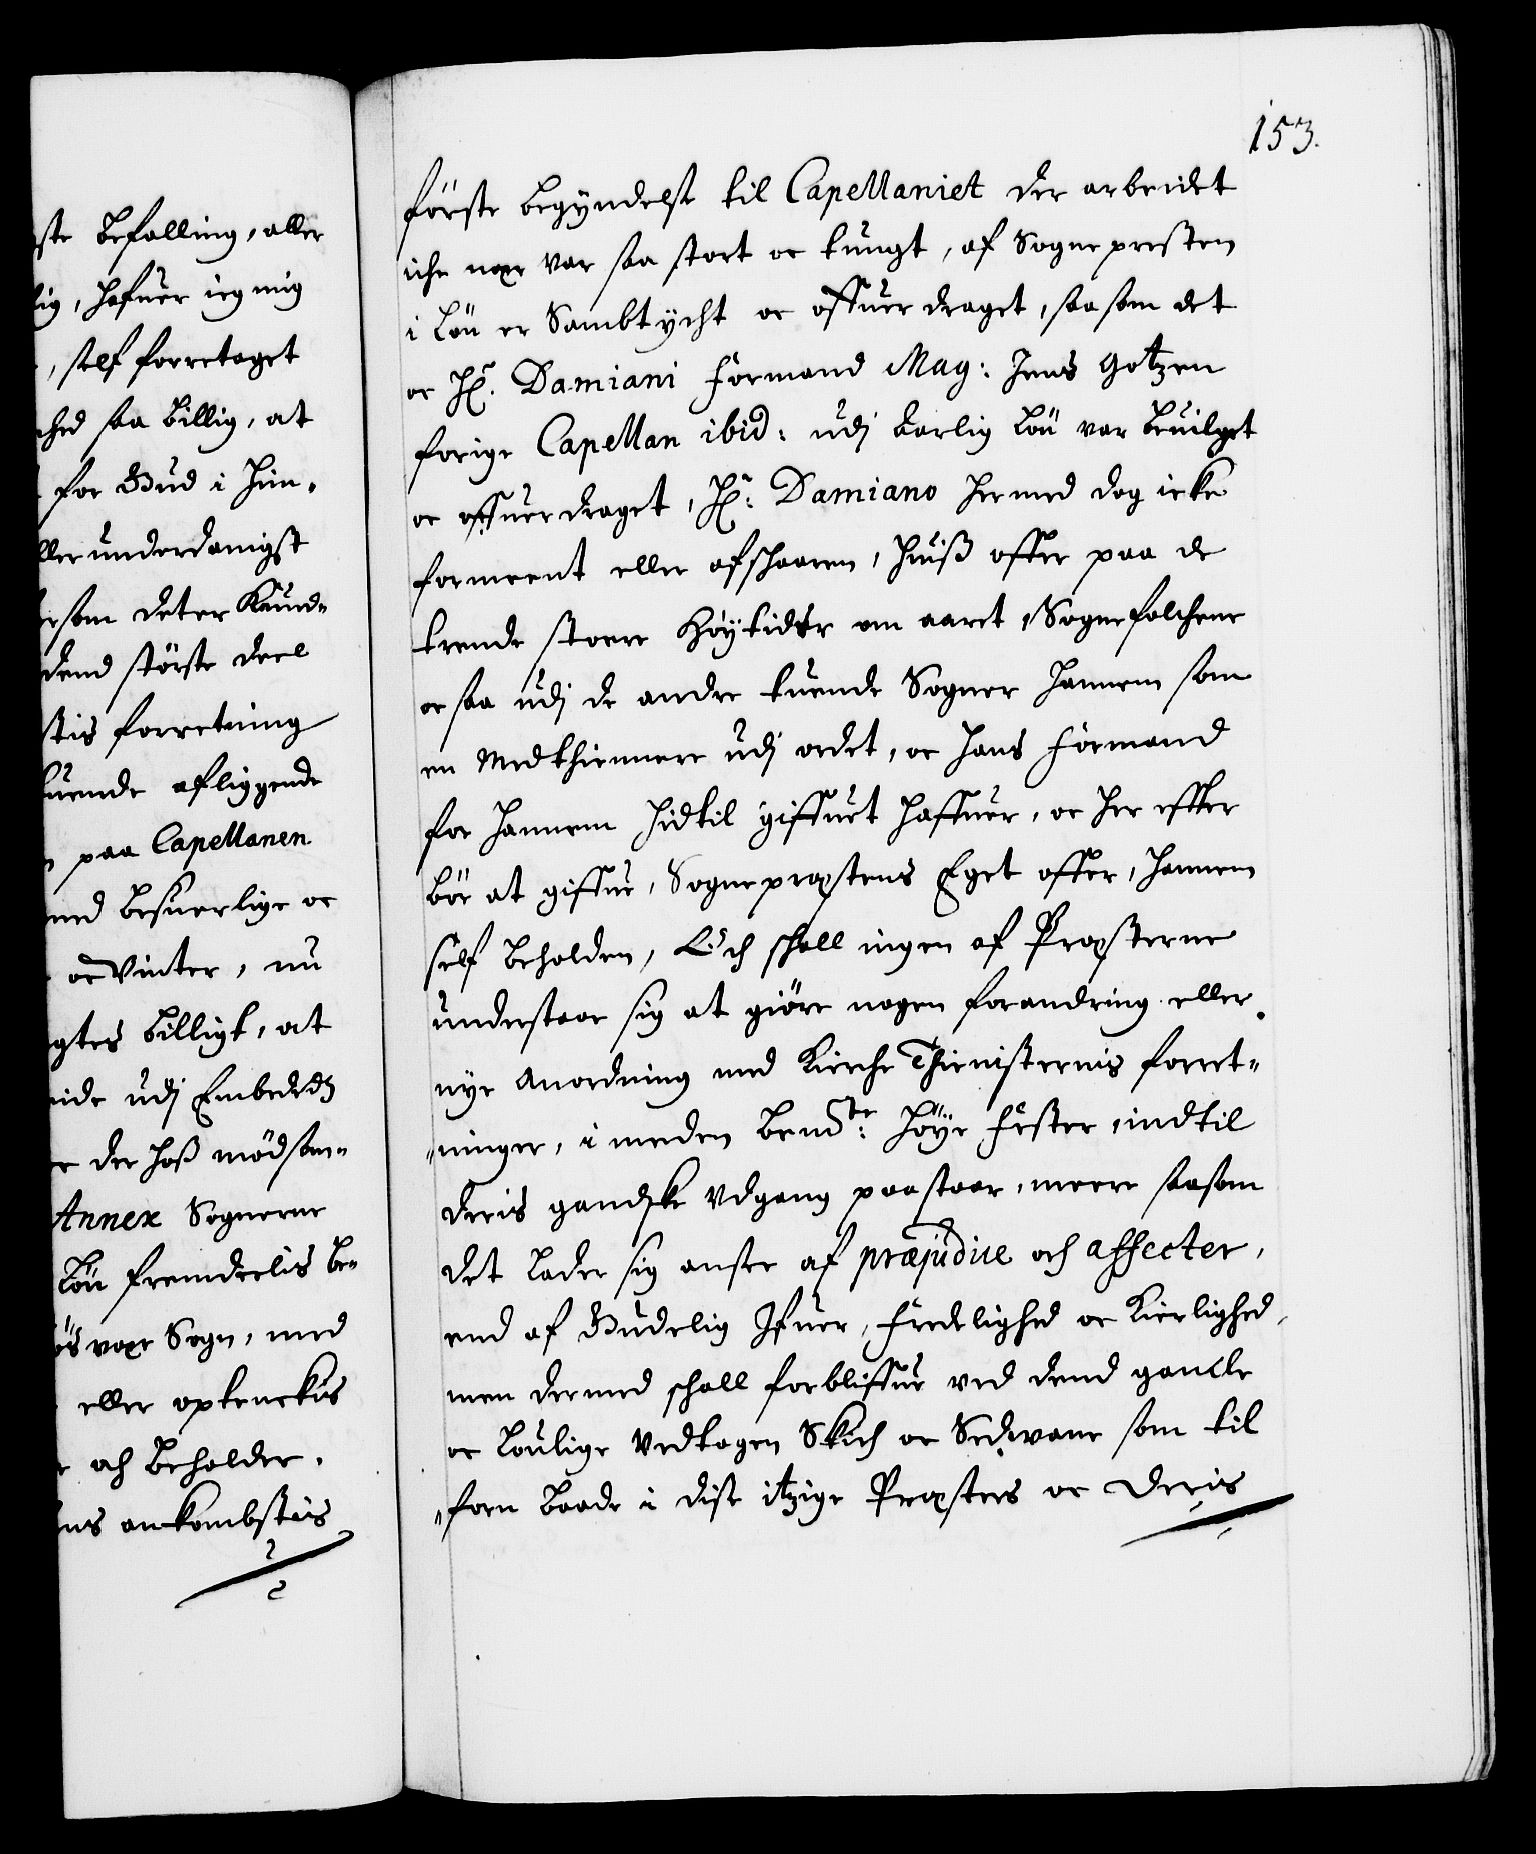 ste befalling, aller
lig, hafuer ieg mig
, self forretaget
ched saa billig, at
for Gud i Him-
ller underdanigst
rsom deter Kund-
dend störste deel
stis forretning
tuende afliggende
n paa Capellanen
med besuerlige oc
oc Vinter, nu
gtes billigt, at
eide udj Embedetz
e der hoss mödsom-
Annex Sognerne
Löu fremdeelis be-
ös vaxe Sogn, med
eller optenckis
r och beholder.
ens ankombstis
153.
förste begÿndelse til Capellaniet der arbeidet
iche nær var saa stort oc tungt, af Sognepresten
i Löu er Sambtÿcht oc offuerdraget, saasom det
oc Hr. Damiani Formand Mag: Jens Gotzen
forige Capellan ibid: udj Erlig Löu var beuilget
oc offuerdraget, Hr: Damiano hermed dog icke
formeent eller afschaaren, huiss offer paa de
trende stoere Höÿtider om aaret, Sognefolchene
oc saa udj de andre tuende Sogner hannem som
en Medthiennere udj ordet, oc hans Formand
for hannem hidtil giffuet haffuer, oc her effter
bör at giffue, Sogneprestens Eget offer, hannem
self beholden, Och schall ingen af Præsterne
understaae sig at giöre nogen forandring eller
nÿe Anordning med Kirche Thienisternis forret-
ninger, i meden bemte: höÿe Fester, indtil
deris gandske Vdgang paastaar, meere saasom
det lader sig ansee af præjudice och affecter,
end af Gudelig Ifuer, Fredelighed oc Kierlighed,
men dermed schall forbliffue ved dend gamle
oc loulige Vedtagen Skich oc Sedwane som til
forn baade i disse itzige Præsters oc deris